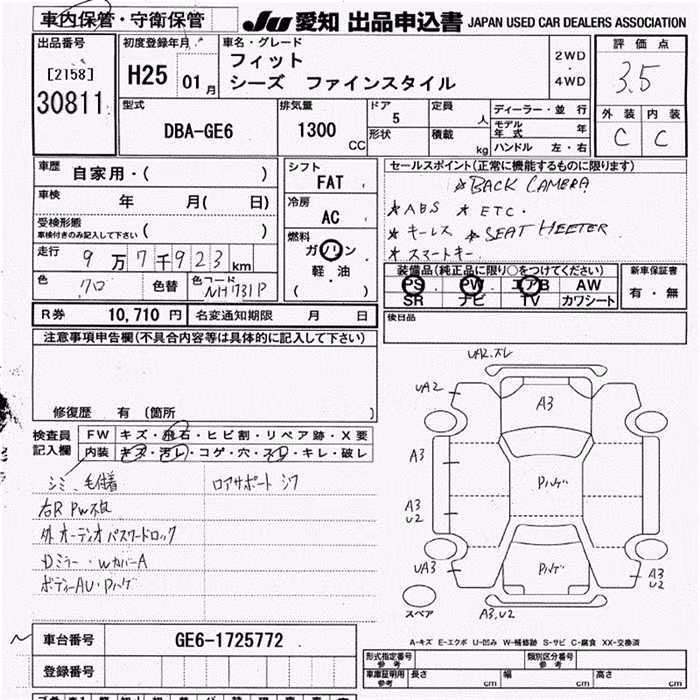 車内保管・守衛保管
JU 愛知 出品申込書 JAPAN USED CAR DEALERS ASSOCIATION
出品番号
[2158]
30811
初度登録年月
H25 01月
車名・グレード
フィット
シーズ ファインスタイル
2WD
・
4WD
評価点
3.5
外装 内装
C C
型式
DBA-GE6
排気量
1300 CC
ドア
5
形状
定員
人
積載
kg
ディーラー・並行
モデル年式 年
ハンドル 左・右
車歴
自家用・( )
車検 年 月( 日)
受検形態
車検付きのみ記入して下さい ( )
走行 9万7千923km
色 クロ 色替 色コード NH731P
シフト
FAT
冷房
AC
燃料
ガソリン
軽・油
( )
セールスポイント(正常に機能するものに限ります)
☆BACK CAMERA
☆ABS ☆ETC.
☆キーレス ☆SEAT HEETER
☆スマートキー
装備品(純正品に限り○をつけてください)
PS PW エアB AW
SR ナビ TV カワシート
新車保証書
有・無
R券 10,710円 名変通知期限 月 日
後日品
注意事項申告欄(不具合内容等は具体的に記入して下さい)
修復歴 有 (箇所 )
検査員
記入欄
FW キズ・飛石・ヒビ割・リペア跡・X要
内装 キズ・汚レ・コゲ・穴・スレ・キレ・破レ
シミ、毛付着 ロアサポートシワ
右R PW不良
外オーディオパスワードロック
Dミラー・WカバーA
ボディーAU・Pハゲ
UA2.ズレ
UA2
A3
A3
Pハゲ
A3
U2
UA3
Pハゲ
A3
U2
スペア
A3.U2
A-キズ E-エクボ U-凹み W-補修跡 S-サビ C-腐食 XX-交換済
車台番号 GE6-1725772
登録番号
形式指定番号
参考
類別区分番号
参考
車庫証明用
参考
長さ cm 幅 cm 高さ cm